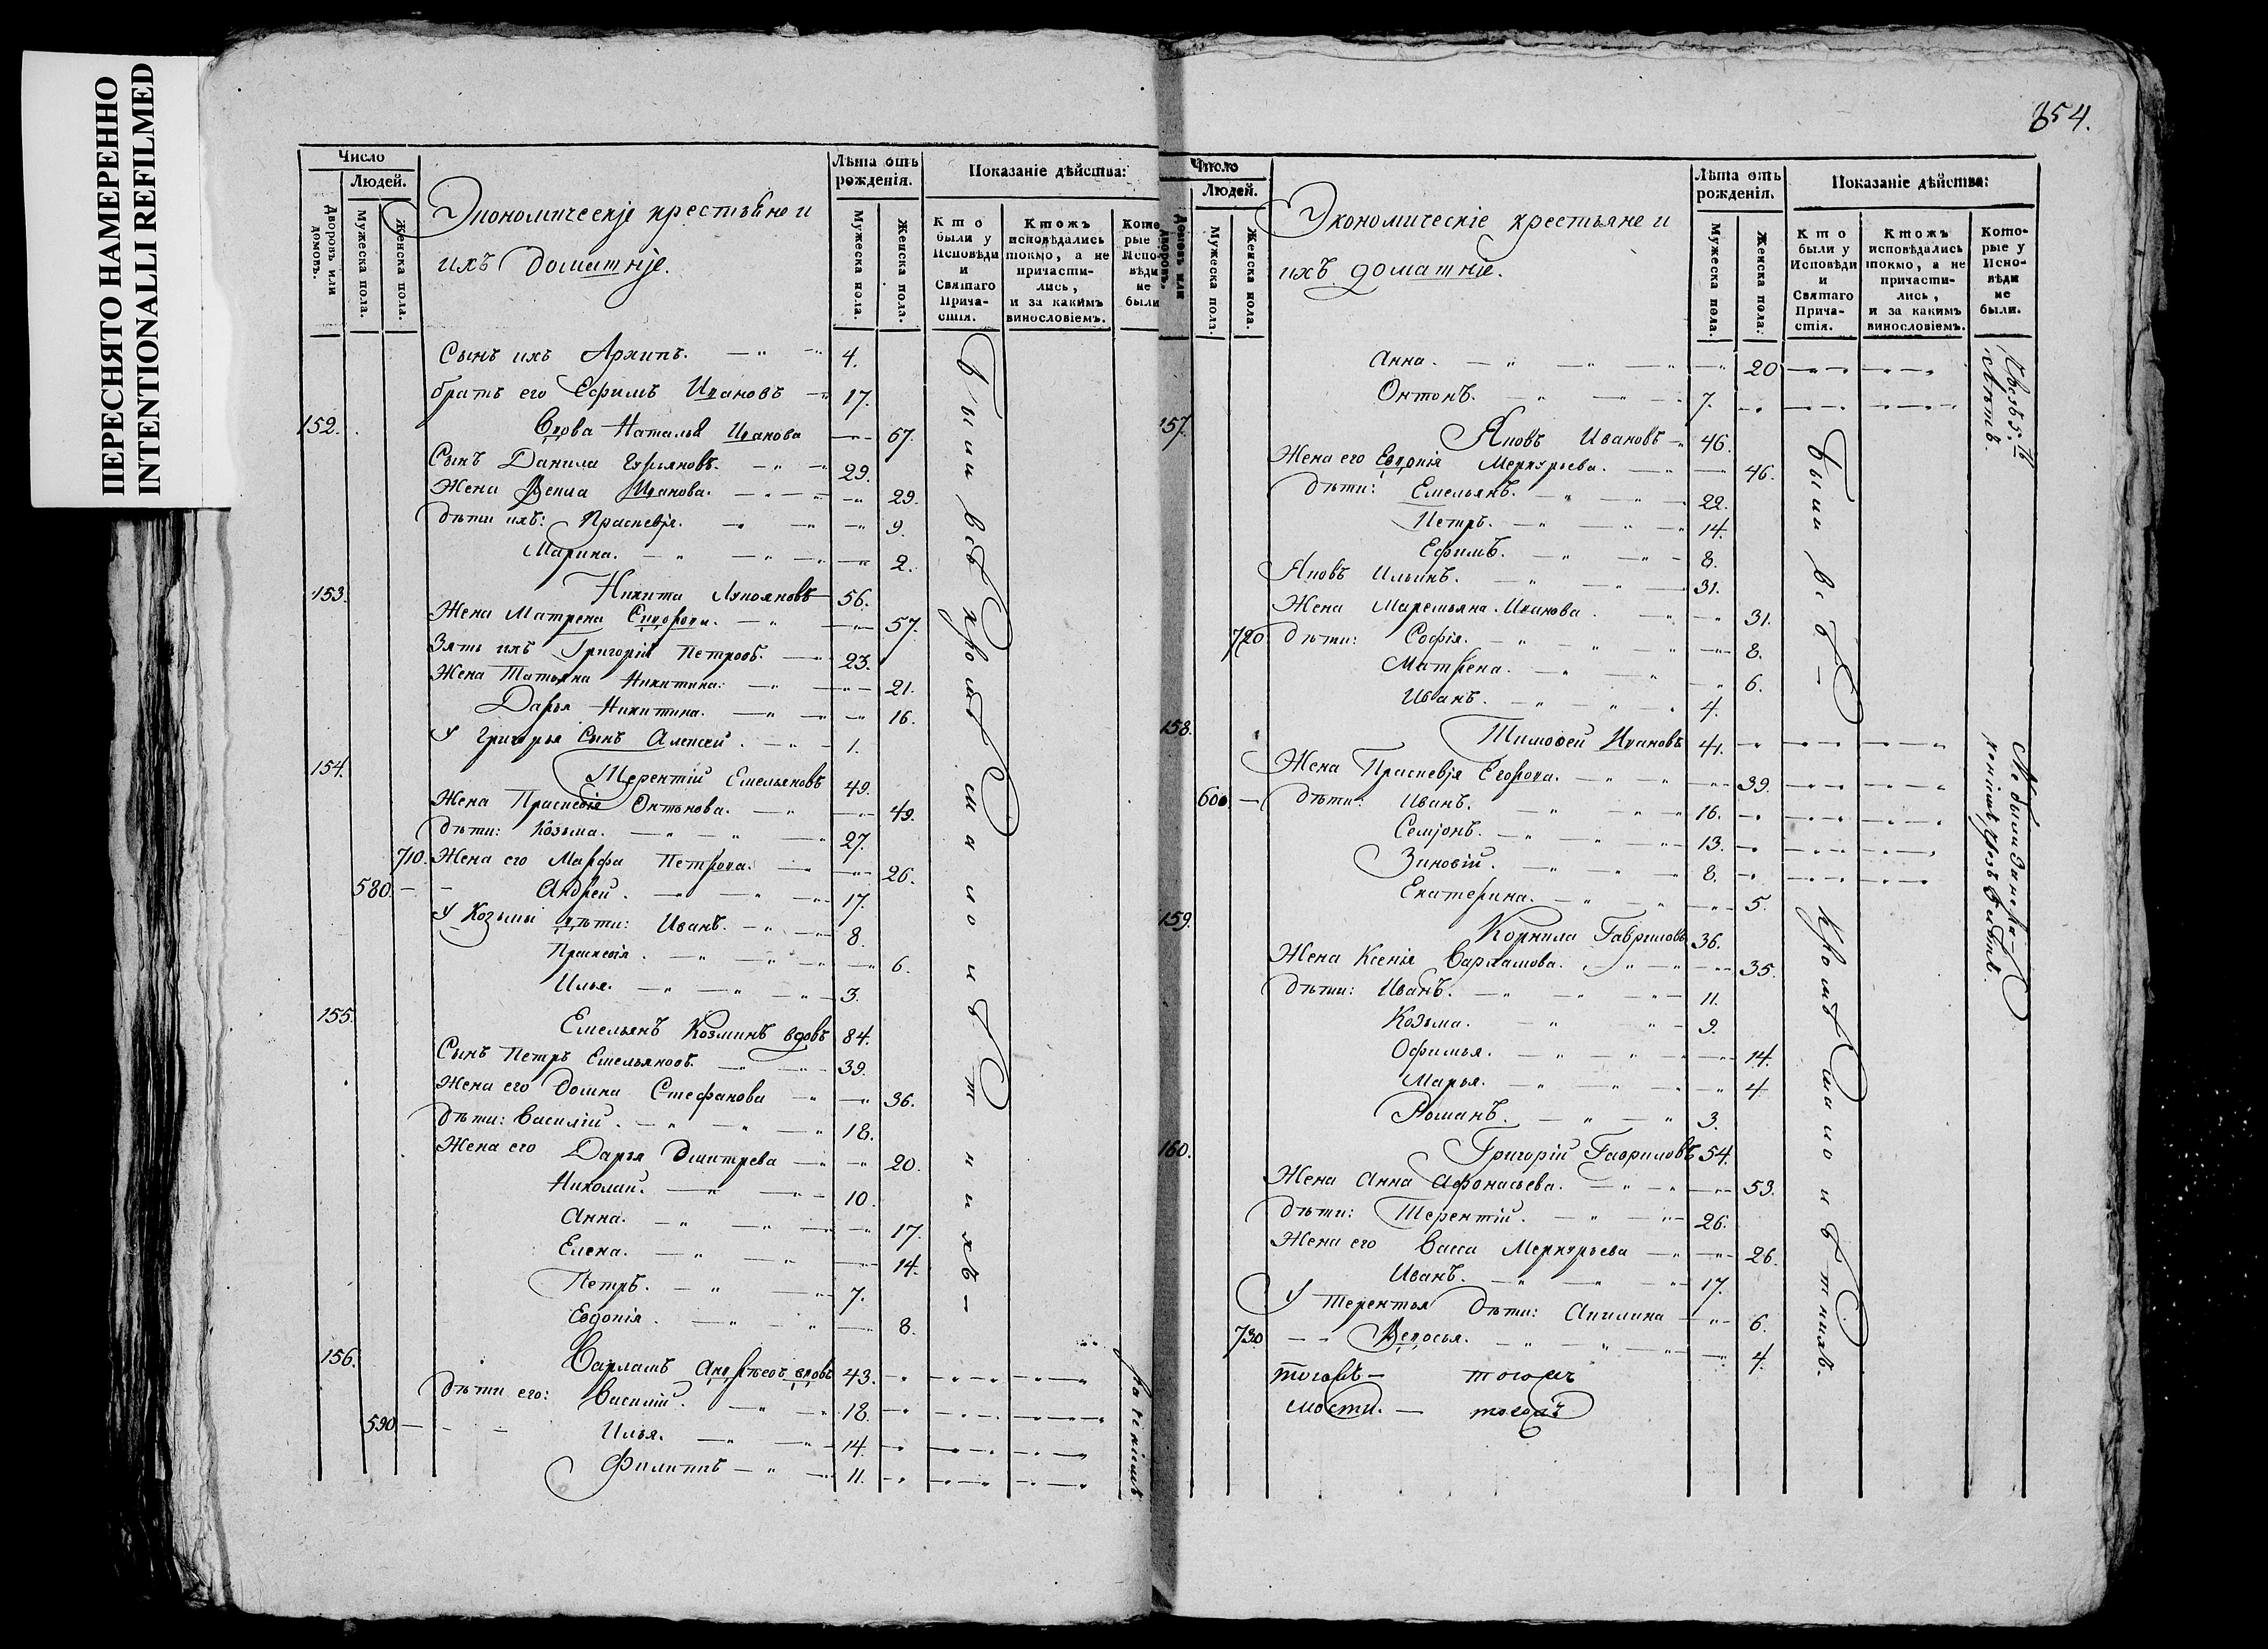 ПЕРЕСНЯТО НАМЕРЕННО
INTENTIONALLI REFILMED
Число
Людей.
Дворовъ или домовъ.
Мужеска пола.
Женска пола.
Экономическіе крестьяне и
ихъ домашніе.
Лѣта отъ рожденія.
Мужеска пола.
Женска пола.
Показаніе дѣйства:
Кто были у Исповѣди и Святаго Причастія.
Ктожъ исповѣдались токмо, а не причастились, и за какимъ винословіемъ.
Которые Исповѣди не были
Сынъ ихъ Архипъ. 4.
братъ его Ефимъ Ивановъ 17.
152. Вдова Наталья Иванова 67.
Сынъ Данила 29.
Жена Иванова. 29.
Дѣти ихъ: Праскевія. 9.
Марина. 2.
153. Никита Лукояновъ 56.
Жена Матрена Сидорова. 57.
Зять ихъ Григорій Петровъ. 23.
Жена Татьяна Никитина. 21.
Дарья Никитина. 16.
У Григорья Сынъ Алексей. 1.
154. Терентій Емельяновъ 49.
Жена Праскевія Онтонова. 49.
Дѣти: Козьма. 27.
710. Жена его Марфа Петрова. 26.
580. Андрей. 17.
У Козьмы дѣти: Иванъ. 8.
Праскевія. 6.
Илья. 3.
155. Емельянъ Козминъ вдовъ 84.
Сынъ Петръ Емельяновъ. 39.
Жена его Домна Стефанова 36.
Дѣти: Василій. 18.
Жена его Дарья Дмитрева 20.
Николай. 10.
Анна. 17.
Елена. 14.
Петръ. 7.
Евдокія. 8.
156. Варламъ Андрѣевъ вдовъ 43.
Дѣти его: Василій. 18.
590 Илья. 14.
Филиппъ 11.
Были всѣ кромѣ малолѣтнихъ
354.
Число
Людей.
Домовъ или дворовъ.
Мужеска пола.
Женска пола.
Экономическіе крестьяне и
ихъ домашніе.
Лѣта отъ рожденія.
Мужеска пола.
Женска пола.
Показаніе дѣйства:
Кто были у Исповѣди и Святаго Причастія.
Ктожъ исповѣдались токмо, а не причастились, и за какимъ винословіемъ.
Которые у Исповѣди не были.
Анна. 20
Онтонъ. 7.
157. Яковъ Ивановъ 46.
Жена его Евдокія Меркурьева. 46.
Дѣти: Емельянъ. 22.
Петръ. 14.
Ефимъ. 8.
Яковъ Ильинъ. 31.
Жена Маремьяна Иванова. 31.
720 Дѣти: Софія. 8.
Матрена. 6.
Иванъ. 4.
158. Тимофей Ивановъ 41.
Жена Праскевія Егорова. 39.
600. Дѣти: Иванъ. 16.
Семіонъ. 13.
Зиновій. 8.
Екатерина. 5.
159. Корнила Гавриловъ 36.
Жена Ксенія Варламова. 35.
Дѣти: Иванъ. 11.
Козьма. 9.
Офимья. 14.
Марья. 4
Романъ. 3.
160. Григорій Гавриловъ 54.
Жена Анна Афонасьева. 53.
Дѣти: Терентій. 26.
Жена его Васса Меркурьева 26.
Иванъ. 17.
У Терентья Дѣти: Акилина 6.
730 4.
Были всѣ
Кромѣ малолѣтнихъ.